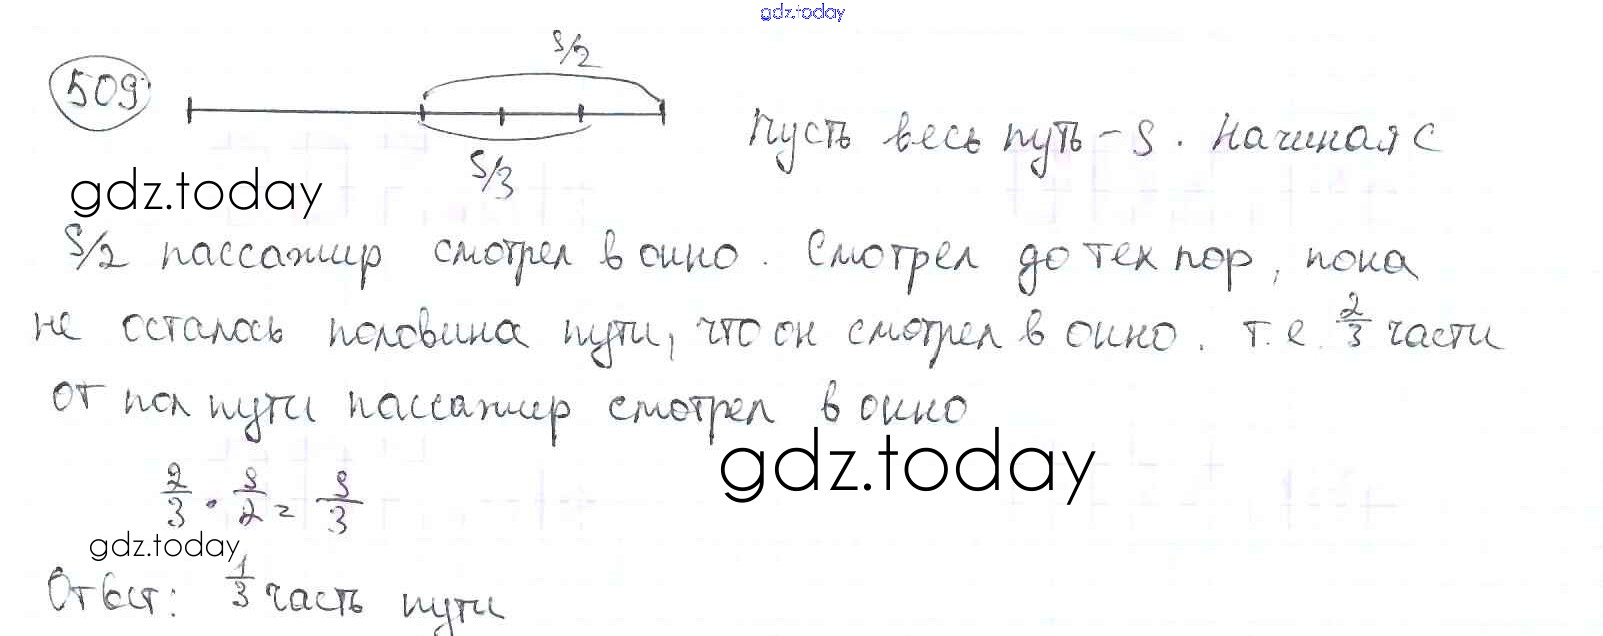 gdz.today
509
S/2
S/3
Пусть весь путь – S. Начиная с
gdz.today
S/2 пассажир смотрел в окно. Смотрел до тех пор, пока
не осталось половина пути, что он смотрел в окно. т.е. 2/3 части
от пол пути пассажир смотрел в окно
gdz.today
2/3 · S/2 = S/3
gdz.today
Ответ: 1/3 часть пути